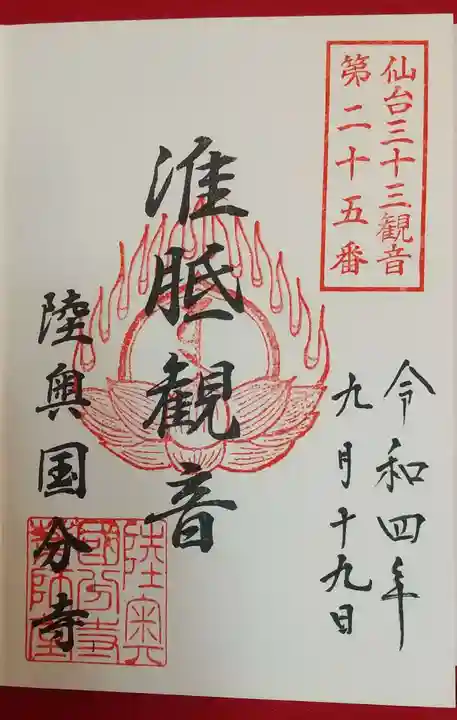 仙台三十三観音
第二十五番
令和四年
九月十九日
准胝観音
陸奥国分寺
陸奥
國分寺
薬師堂